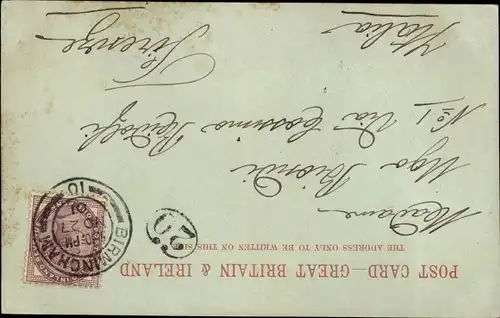 POST CARD—GREAT BRITAIN & IRELAND
THE ADDRESS ONLY TO BE WRITTEN ON THIS SIDE
Madame
Ugo Biondi
No 1 Via Cossimo Ridolfi
Firenze
Italia
BIRMINGHAM
27
01
20